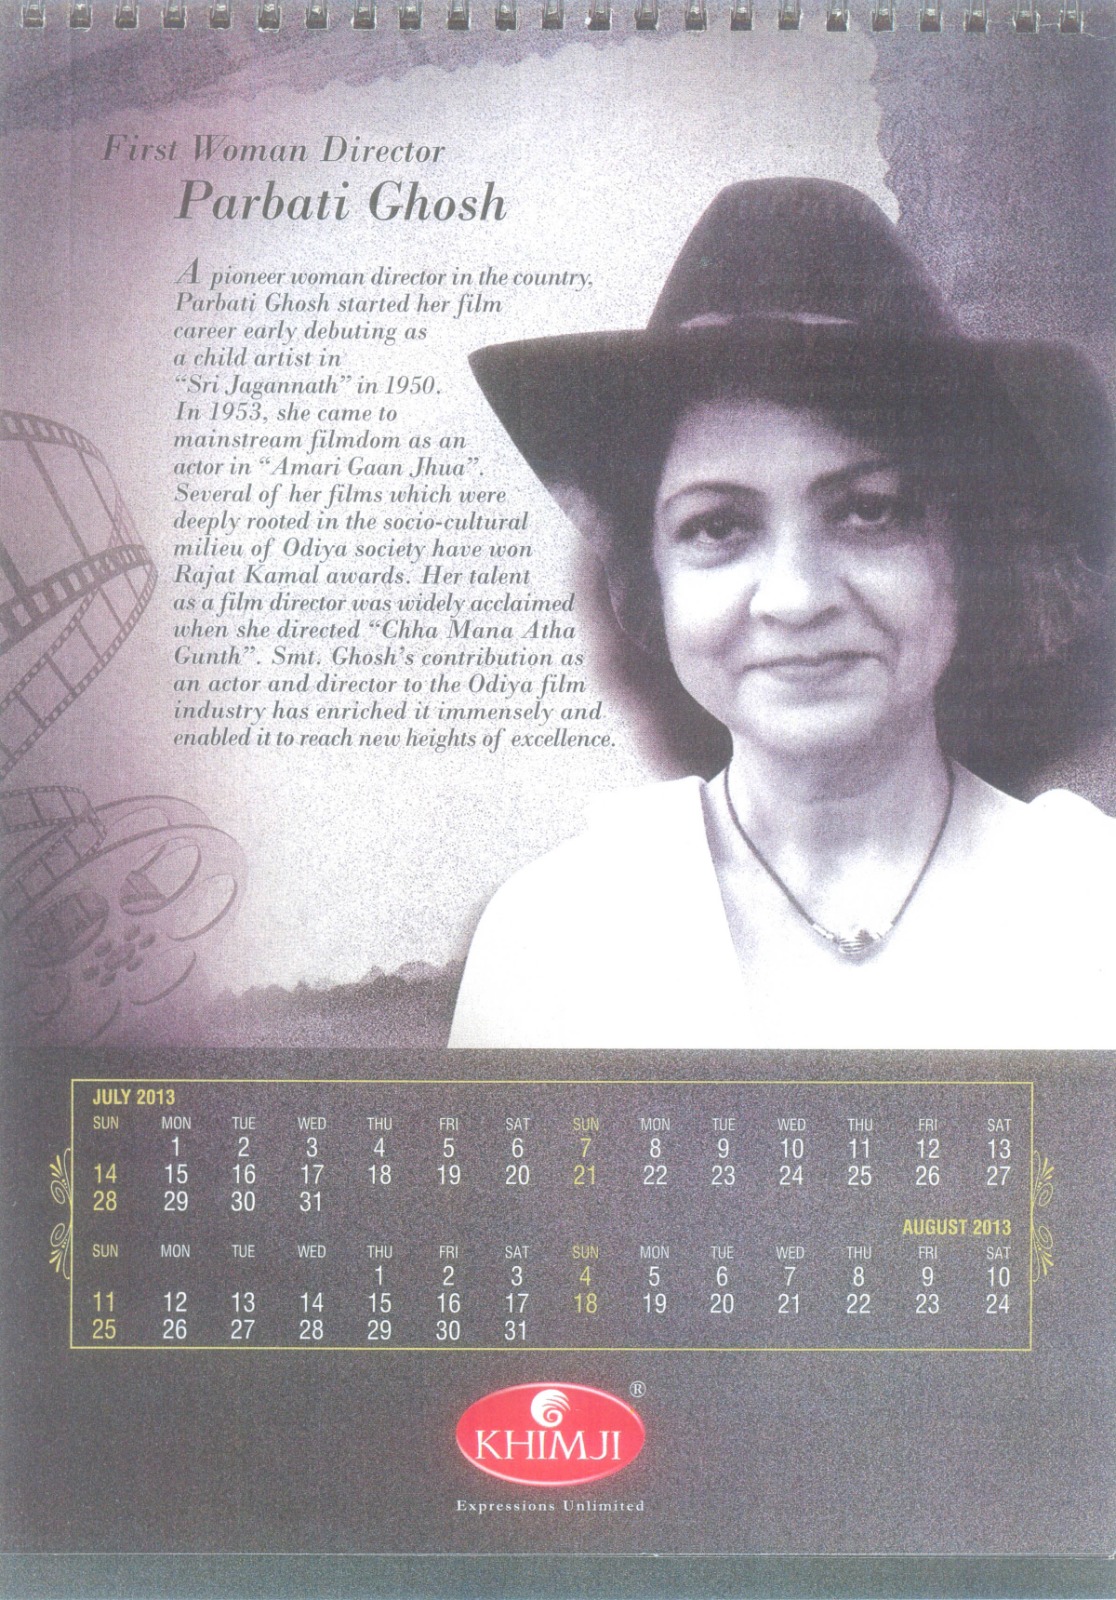 First Woman Director
Parbati Ghosh
A pioneer woman director in the country,
Parbati Ghosh started her film
career early debuting as
a child artist in
“Sri Jagannath” in 1950.
In 1953, she came to
mainstream filmdom as an
actor in “Amari Gaan Jhua”.
Several of her films which were
deeply rooted in the socio-cultural
milieu of Odiya society have won
Rajat Kamal awards. Her talent
as a film director was widely acclaimed
when she directed “Chha Mana Atha
Gunth”. Smt. Ghosh’s contribution as
an actor and director to the Odiya film
industry has enriched it immensely and
enabled it to reach new heights of excellence.
JULY 2013
SUN MON TUE WED THU FRI SAT SUN MON TUE WED THU FRI SAT
1 2 3 4 5 6 7 8 9 10 11 12 13
14 15 16 17 18 19 20 21 22 23 24 25 26 27
28 29 30 31
AUGUST 2013
SUN MON TUE WED THU FRI SAT SUN MON TUE WED THU FRI SAT
1 2 3 4 5 6 7 8 9 10
11 12 13 14 15 16 17 18 19 20 21 22 23 24
25 26 27 28 29 30 31
®
KHIMJI
Expressions Unlimited